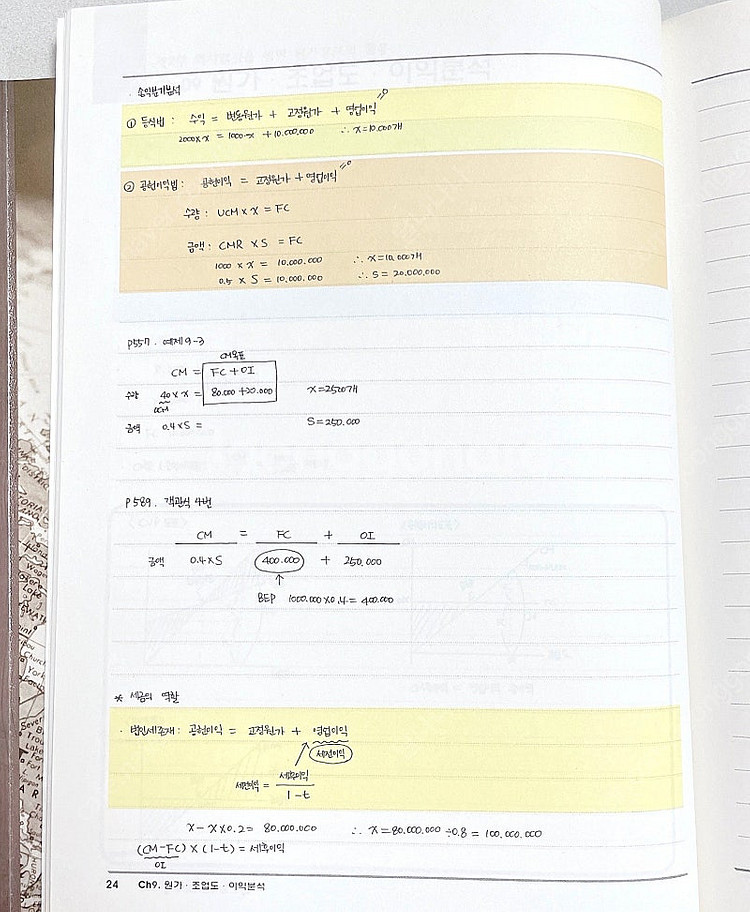 · 손익분기분석
=0
① 등식법 : 수익 = 변동원가 + 고정원가 + 영업이익
2000×x = 1000·x + 10.000.000 ∴ x=10.000개
=0
② 공헌이익법 : 공헌이익 = 고정원가 + 영업이익
수량 : UCM × x = FC
금액 : CMR × S = FC
1000 × x = 10.000.000 ∴ x=10.000개
0.5 × S = 10.000.000 ∴ S = 20.000.000
P557. 예제9-3
CM목표
CM = FC + OI
수량 40 × x = 80.000 + 20.000 x=2500개
UCM
금액 0.4×S = S=250.000
P589. 객관식 4번
CM = FC + OI
금액 0.4×S 400.000 + 250.000
↑
BEP 1000.000×0.4 = 400.000
* 세금의 역할
· 법인세존재 : 공헌이익 = 고정원가 + 영업이익
세전이익
세전이익 = 세후이익
1-t
x - x×0.2 = 80.000.000 ∴ x=80.000.000 ÷0.8 = 100.000.000
(CM-FC) × (1-t) = 세후이익
OI
24 Ch9. 원가 · 조업도 · 이익분석